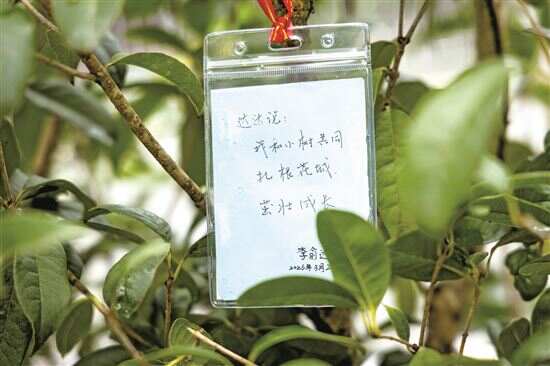 说：
我和小树共同
扎根花城
茁壮成长
李俞
2025年3月2